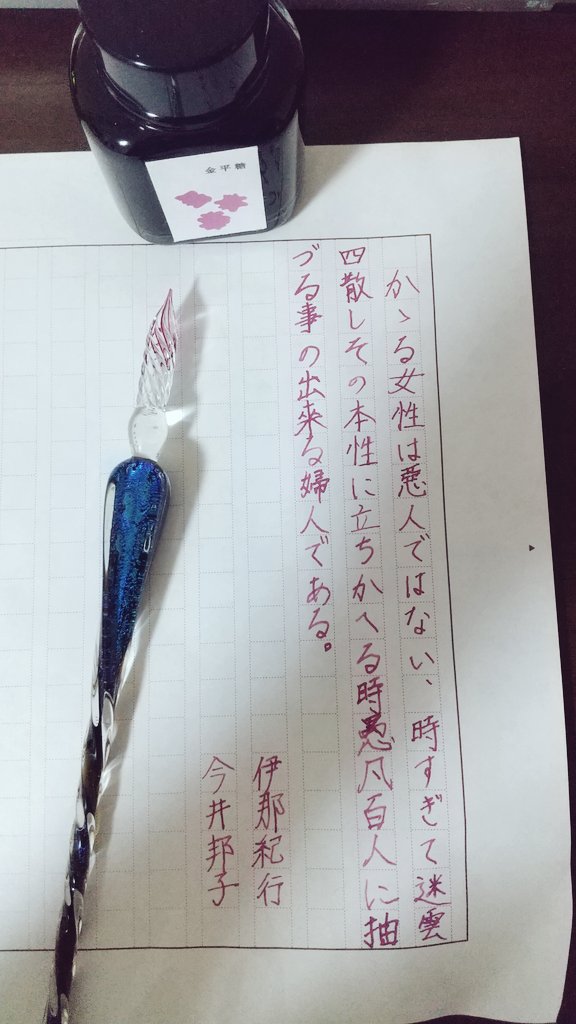 金平糖
かゝる女性は悪人ではない、時すぎて迷雲
四散しその本性に立ちかへる時凡百人に抽
づる事の出来る婦人である。
伊那紀行
今井邦子